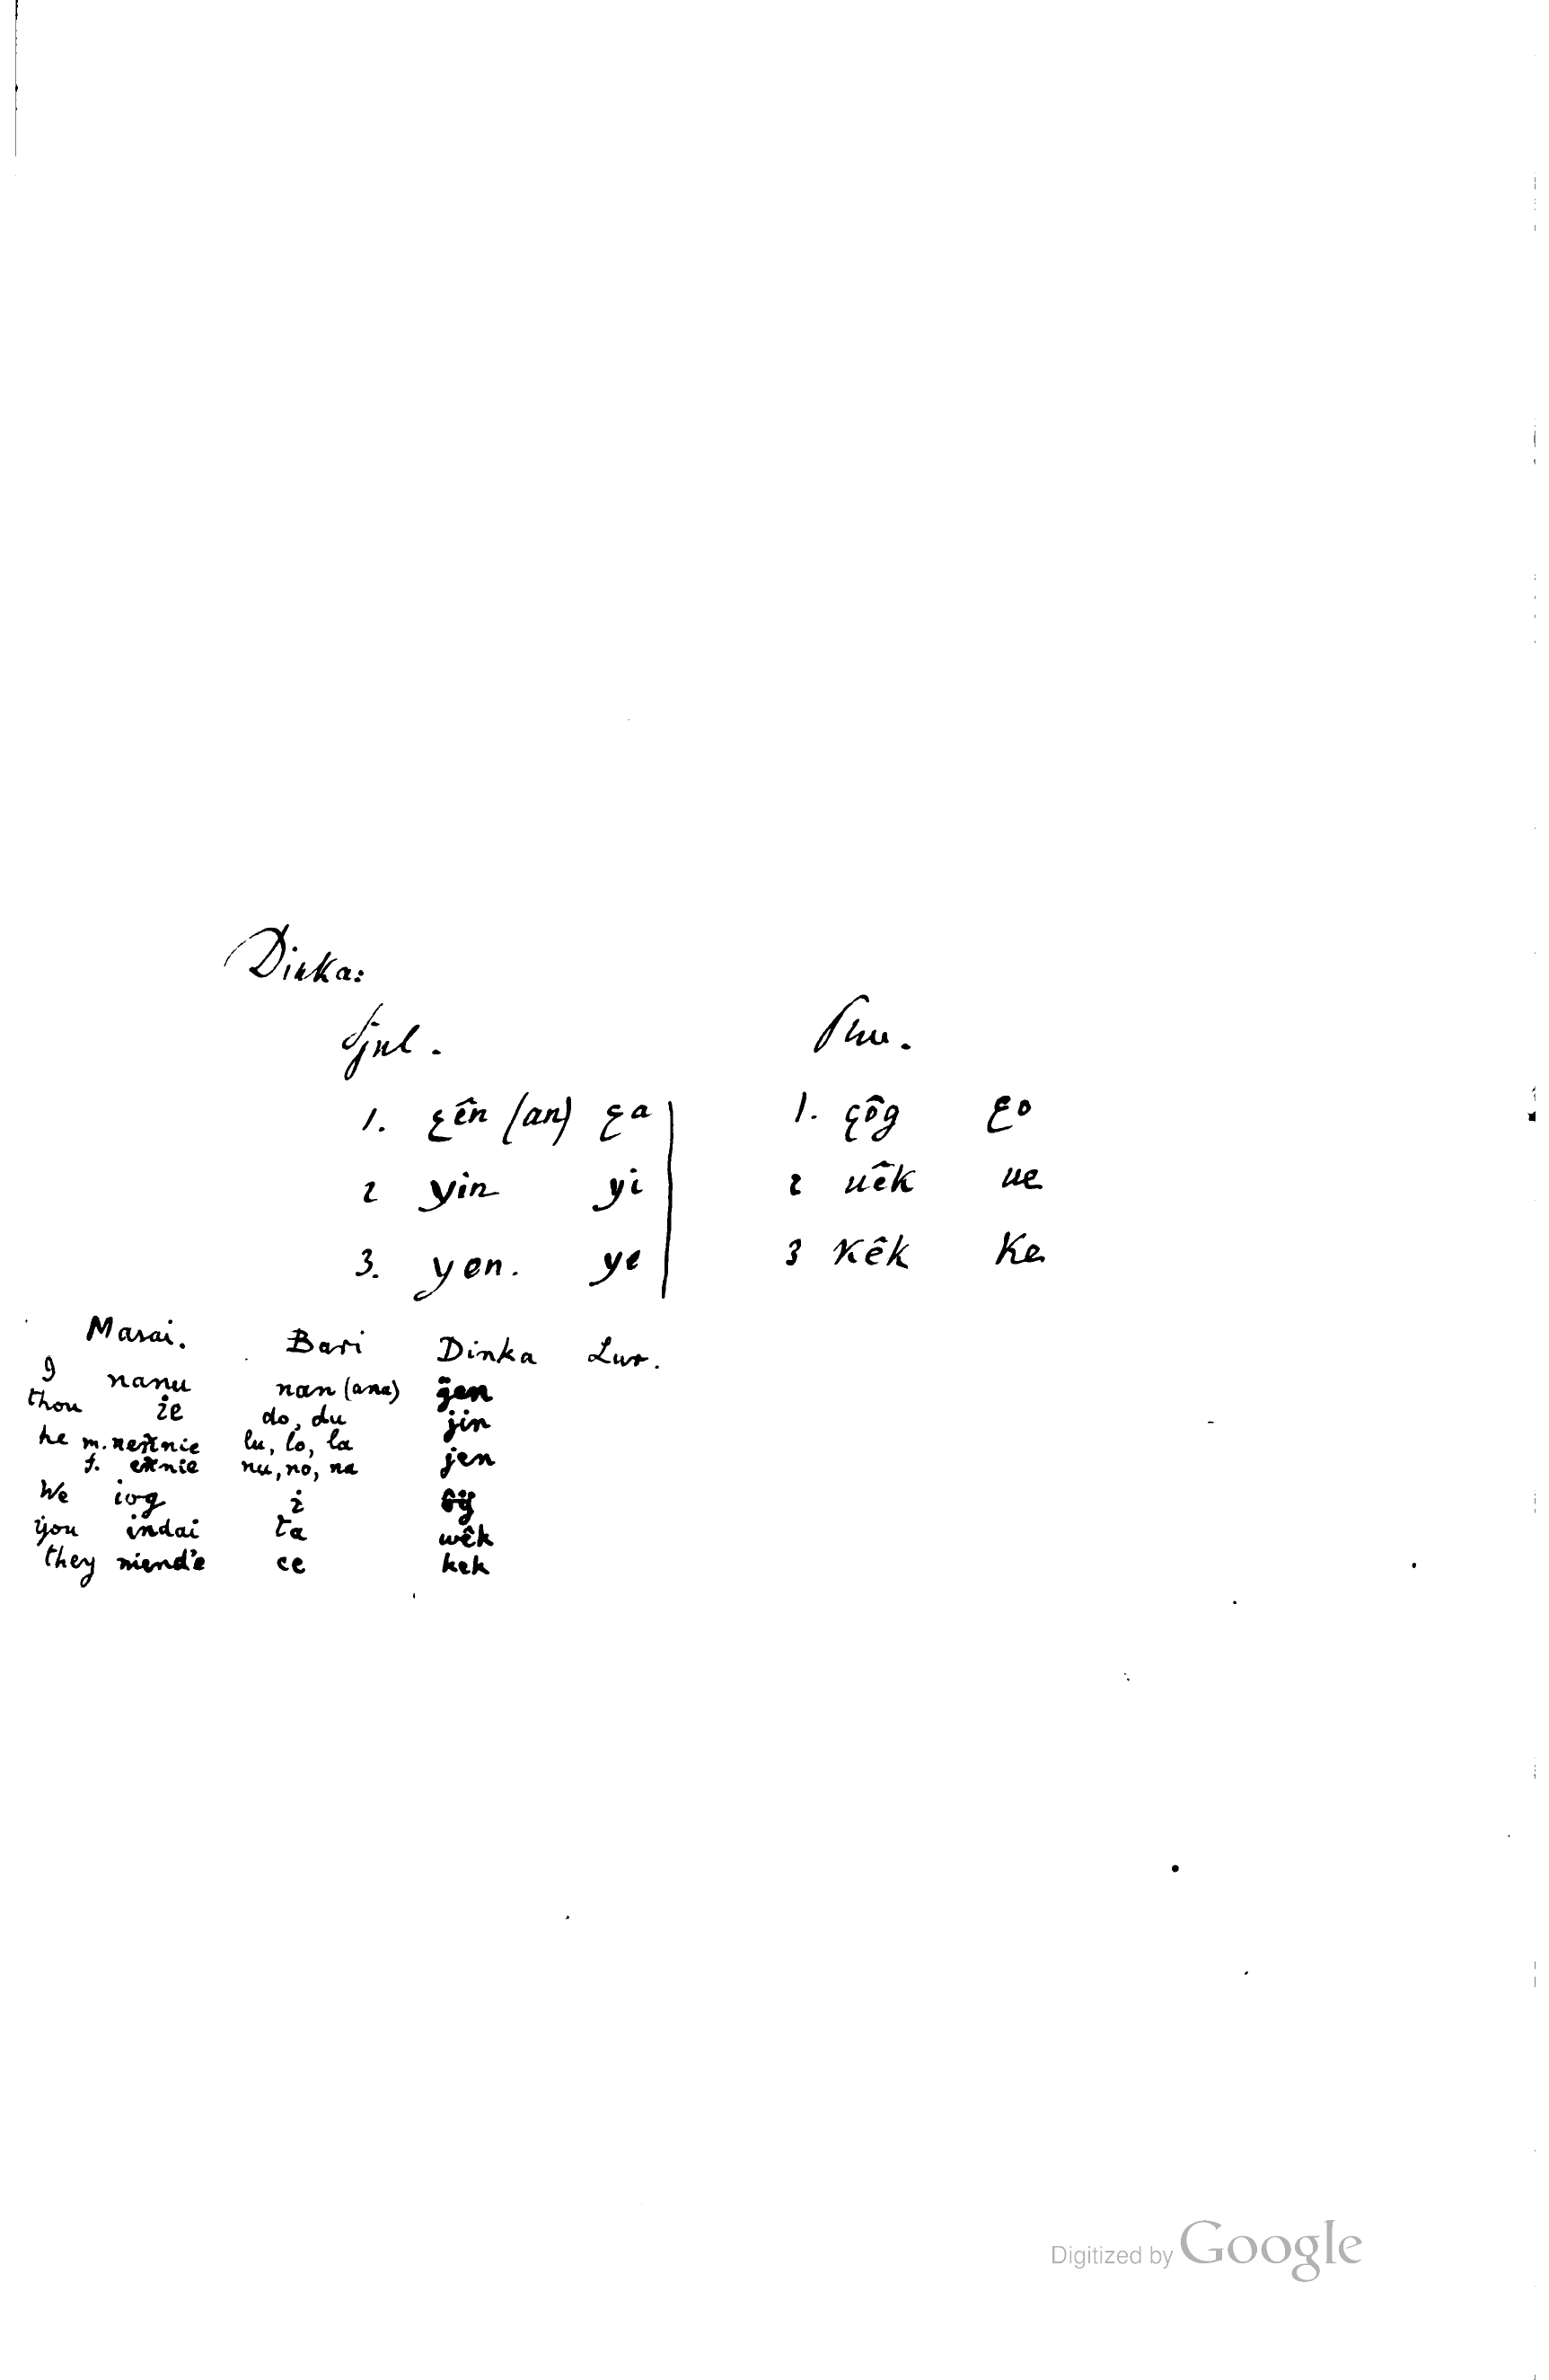 Dinka:
Sgul. Plur.
1. ȩên (an) ȩa 1. çôg ȩo
2 yin yi 2 uêk ue
3. yen. ye 3 Kêk Ke
Masai. Bari Dinka Lur.
I nanu nan (ana) gen
thou ie do, du jin
he m. lu, lo, la jen
f. nu, no, na
We iog i
you indai ta wêk
they niend'e ce kek
Digitized by Google